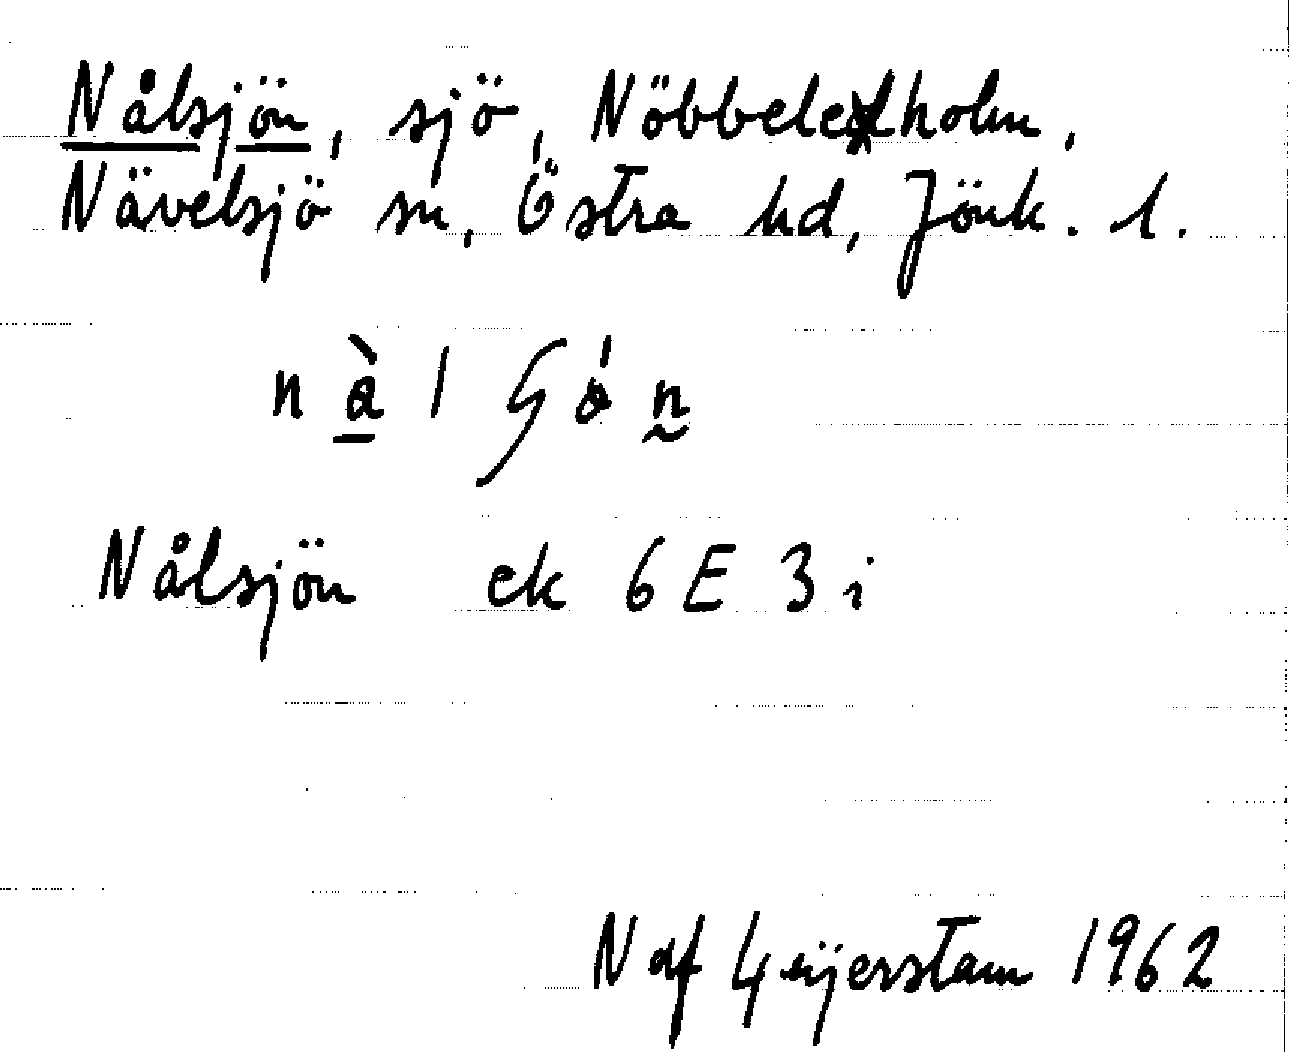 Nålsjön, sjö, Nöbbeleholm,
Nävelsjö sn, Östra hd, Jönk. l.
Nålsjön ek 6 E 3 i
N af Geijerstam 1962